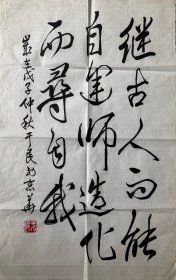 继古人而能
自建师造化
而寻自我
岁在戊子仲秋于民于京華